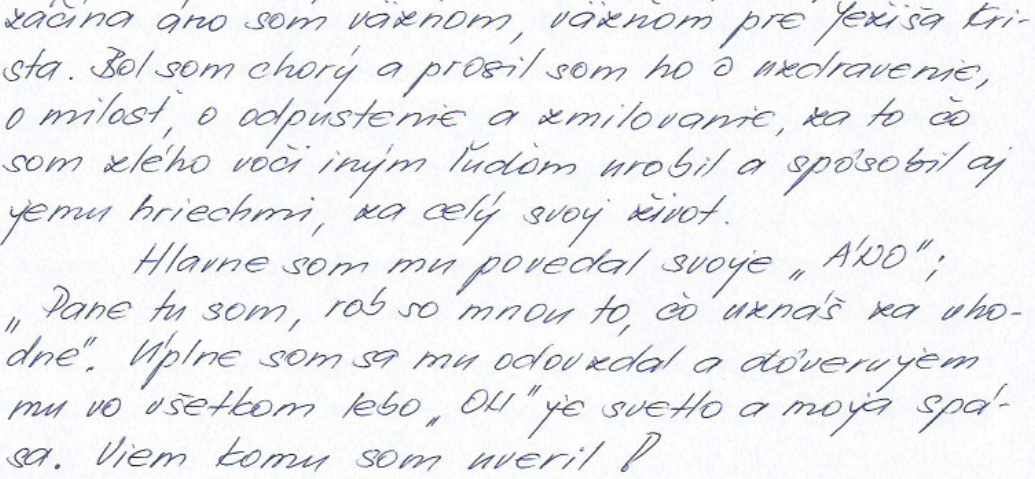 začína áno som väznom, väznom pre Ježiša Kri-
sta. Bol som chorý a prosil som ho o uzdravenie,
o milosť, o odpustenie a zmilovanie, za to čo
som zlého voči iným ľuďom urobil a spôsobil aj
jemu hriechmi, za celý svoj život.
Hlavne som mu povedal svoje „ÁNO";
„Pane tu som, rob so mnou to, čo uznáš za vho-
dné". Úplne som sa mu odovzdal a dôverujem
mu vo všetkom lebo „ON" je svetlo a moja spá-
sa. Viem komu som uveril!